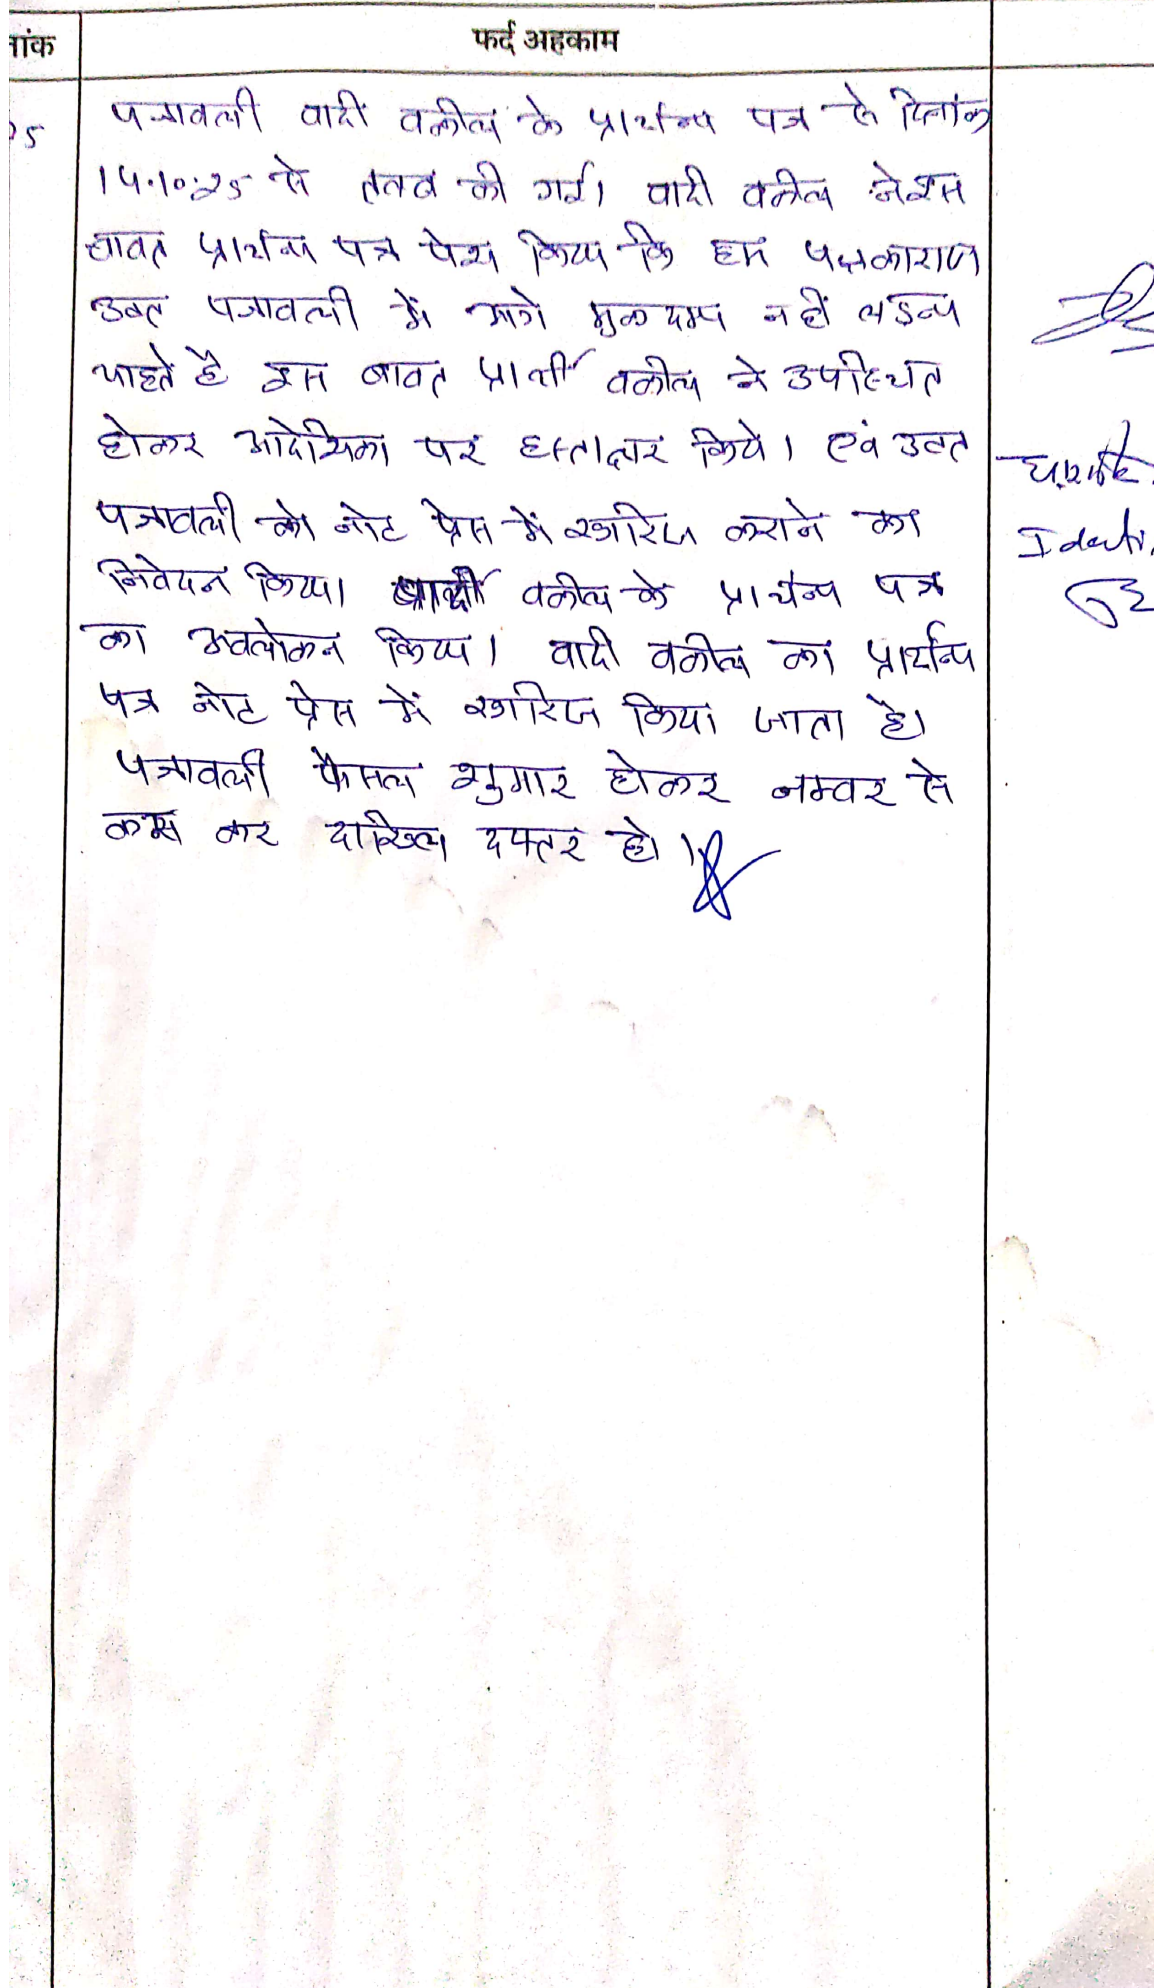 नांक फर्द अहकाम
25 पत्रावली वादी वकील के प्रार्थना पत्र से दिनांक
14.10.25 से तलब की गई। वादी वकील ने इस
बावत प्रार्थना पत्र पेश किया कि हम पक्षकाराण
उक्त पत्रावली में आगे मुकदमा नहीं लडना
चाहते है इस बावत प्रार्थी वकील ने उपस्थित
होकर आदेशिका पर हस्ताक्षर किये। एवं उक्त
पत्रावली को नोट प्रेस में खारिज कराने का
निवेदन किया। प्रार्थी वकील के प्रार्थना पत्र
का अवलोकन किया। वादी वकील का प्रार्थना
पत्र नोट प्रेस में खारिज किया जाता है।
पत्रावली फैसल शुमार होकर नम्बर से
कम कर दाखिल दफ्तर हो।
Identi